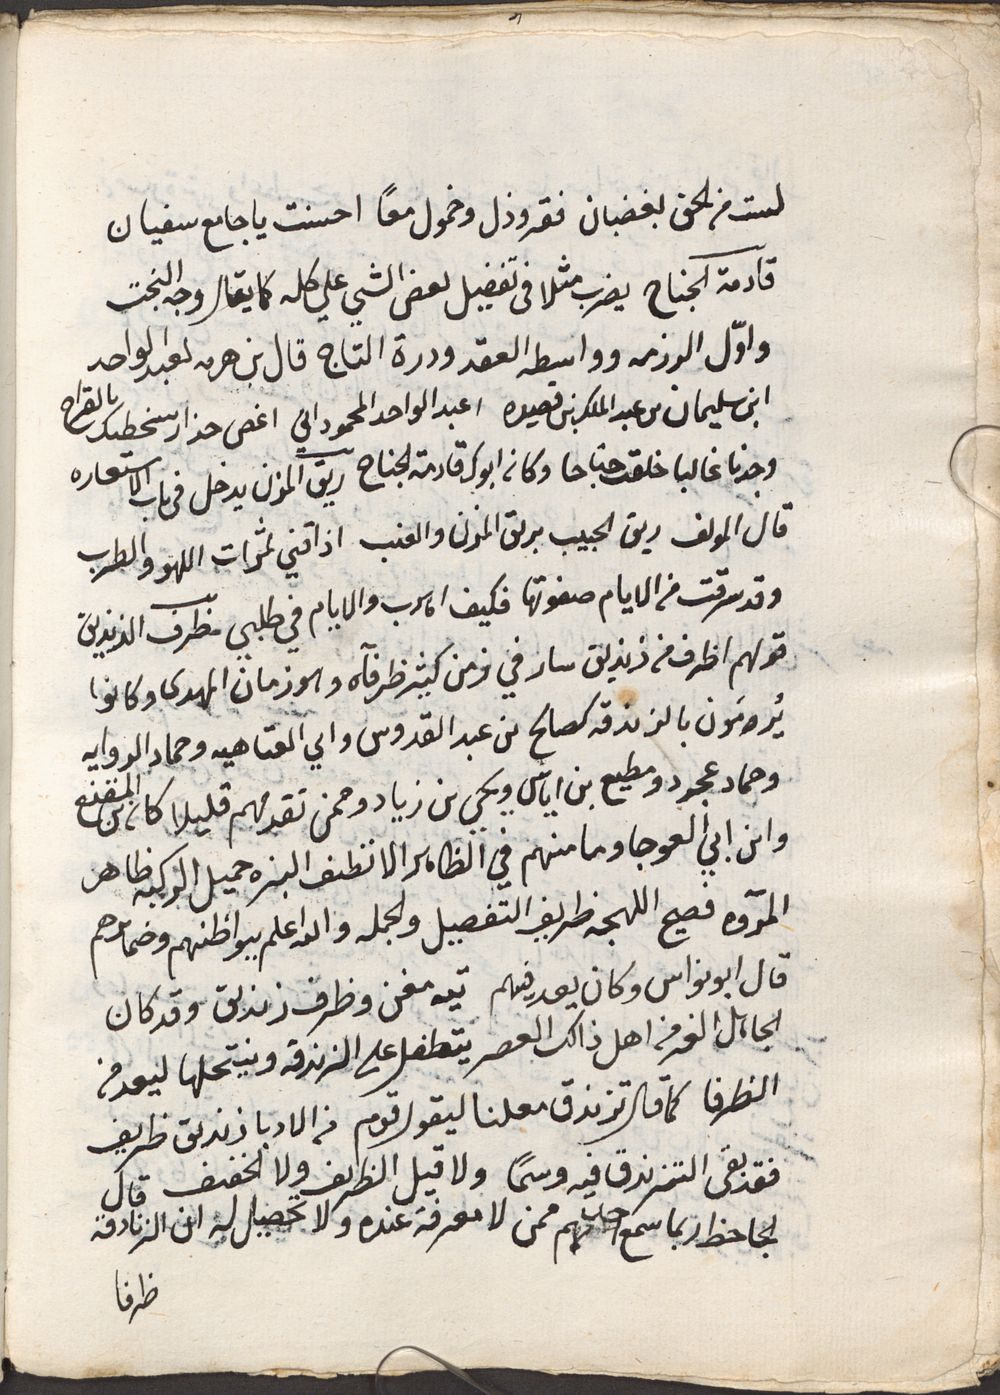 لست من الحق بغضبان فقر وذل وخمول معًا احسنت يا جامع سفيان
قادمة الجناح يضرب مثلا فى تفضيل بعض الشي علي كله كما يقال وجه التخت
واوّل الرزمه وواسطه العقد ودرة التاج قال بن هرمه لعبد الواحد
ابن سليمان بن عبد الملك من قصيده اعبد الواحد المحمود اني اغص حذار سخطك بالقراح
وجدنا غالبا خلقت جناحا وكان ابوك قادمة الجناح ريق المزن يدخل فى باب الاستعاره
قال المولف ريق الحبيب بريق المزن والعنب اذاقني ثمرات اللهو والطرب
وقد سرقت من الايام صفوتها فكيف اهرب والايام في طلبي ظرف الزنديق
قولهم اظرف من زنديق سار في زمن كثير ظرفآه وهو زمان المهدى وكانوا
يُرمَون بالزندقه كصالح بن عبد القدوس وابي العتاهيه وحماد الروايه
وحماد عجرد ومطيع بن اياس ويحيي بن زياد وممن تقدمهم قليلا كابن المقفع
وابن ابي العوجا وما منهم في الظاهر الا نظيف البزه جميل الركبه ظاهر
المرّوه فصيح اللهجه ظريف التفصيل والجمله والله اعلم ببواطنهم وضمايرهم
قال ابو نواس وكان يعد فيهم تيه مغن وظرف زنديق وقد كان
الجاهل الغر من اهل ذاك العصر يتطفل على الزندقه وينتحلها ليعد من
الظرفا كما قال تزندق معلنا ليقول قوم من الادبا زنديق ظريف
فقد بقى التزندق فيه وسمًا ولا قيل الظريف ولا الخفيف قال
الجاحظ ربما سمع احدهم ممن لا معرفة عنده ولا تحصيل له ان الزنادقة
ظرفا